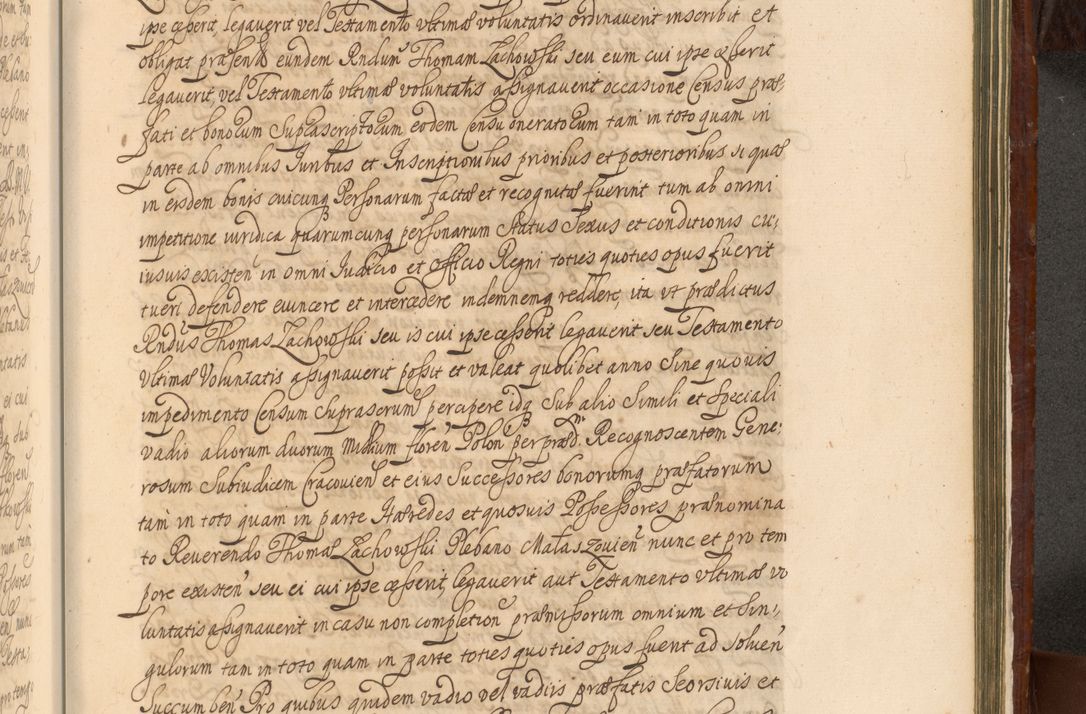 ipse cesserit, legaverit vel Testamento vltimæ voluntatis ordinaverit inscribit et
obligat præsentib eundem Rndum Thomam Zachowski seu eum cui ipse cesserit
legaverit, vel Testamento vltimæ voluntatis assignaverit occasione Census præ-
fati et bonorum Suprascriptorum eodem Censu oneratorum tam in toto quam in
parte ab omnibus Iuribus et Inscriptionibus prioribus et posterioribus si quæ
in eisdem bonis cuicunq Personarum factæ et recognitæ fuerint tum ab omni
impetitione iuridica quarumcunq personarum Status Sexus et conditionis cu-
iusuis existen in omni Iudicio et Officio Regni toties quoties opus fuerit
tueri defendere euincere et intercedere indemnemq reddere, ita vt prædictus
Rndus Thomas Zachowski seu is cui ipse cesserit legaverit seu Testamento
vltimæ Voluntatis assignaverit possit et valeat quolibet anno Sine quouis
impedimento Censum Suprascrum percipere idq Sub alio Simili et Speciali
vadio aliorum duorum Millium floren Polon per præd. Recognoscentem Gene-
rosum Subiudicem Cracovien et eius Successores bonorumq præfatorum
tam in toto quam in parte Hæredes et quosuis Possessores prænomina
to Reverendo Thomæ Zachowski Plebano Małaszovien nunc et pro tem
pore existen seu ei cui ipse cesserit, legaverit aut Testamento vltimæ vo
luntatis assignaverit in casu non completion præmissorum omnium et Sin-
gulorum tam in toto quam in parte toties quoties opus fuerit ad Soluen
Succumben Pro quibus quidem vadio vel vadiis præfatis Seorsivis et